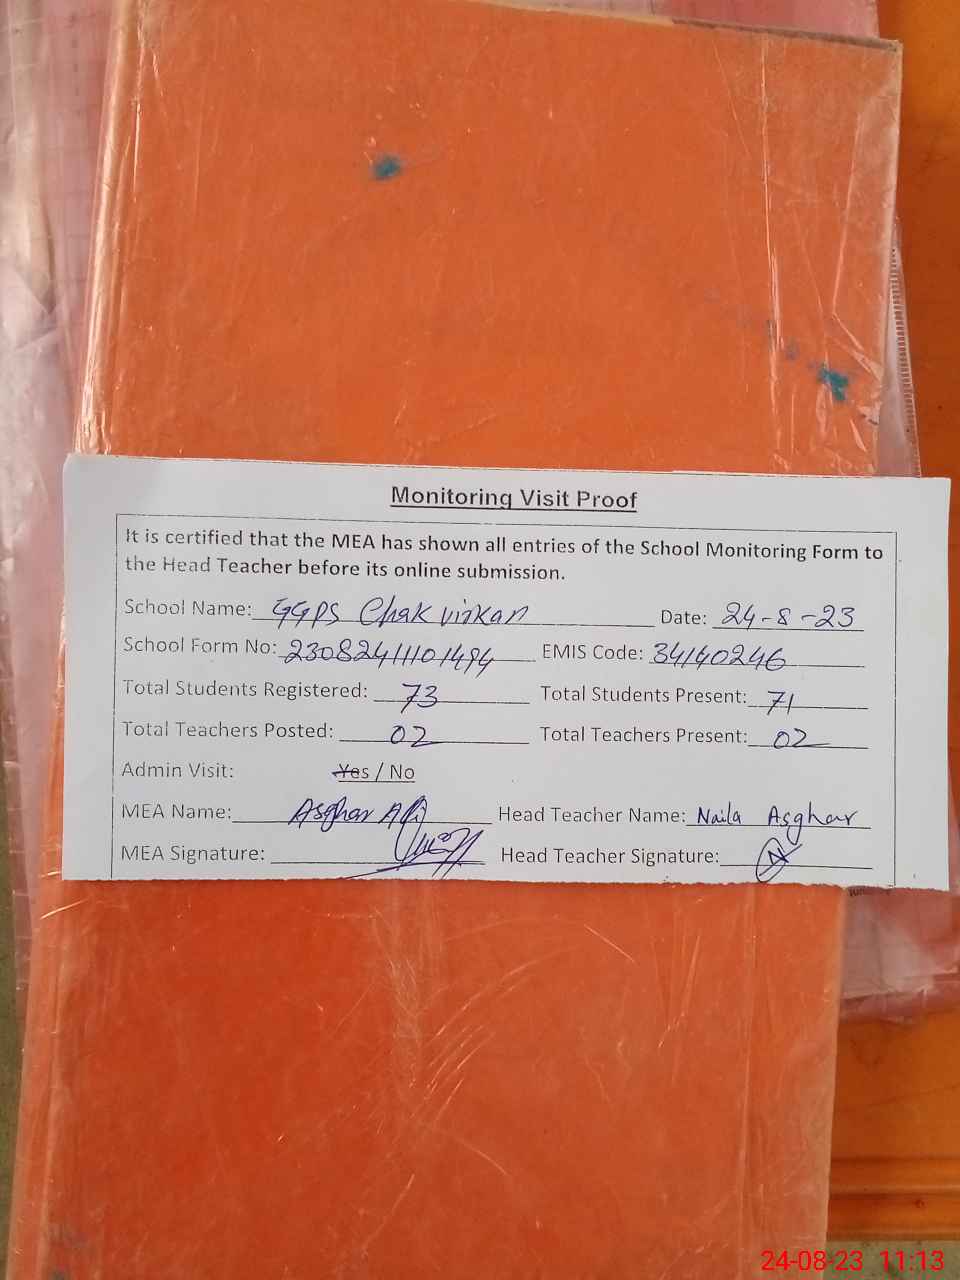 Monitoring Visit Proof
It is certified that the MEA has shown all entries of the School Monitoring Form to
the Head Teacher before its online submission.
School Name: GGPS Chak virkan Date: 24-8-23
School Form No: 23082411101494 EMIS Code: 34140246
Total Students Registered: 73 Total Students Present: 71
Total Teachers Posted: 02 Total Teachers Present: 02
Admin Visit: Yes / No
MEA Name: Asghar Ali Head Teacher Name: Naila Asghar
MEA Signature: Head Teacher Signature: N
24-08-23 11:13